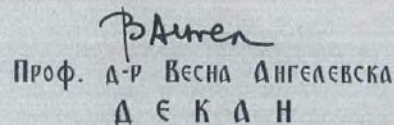 Проф. д-р Весна Ангелевска
ДЕКАН